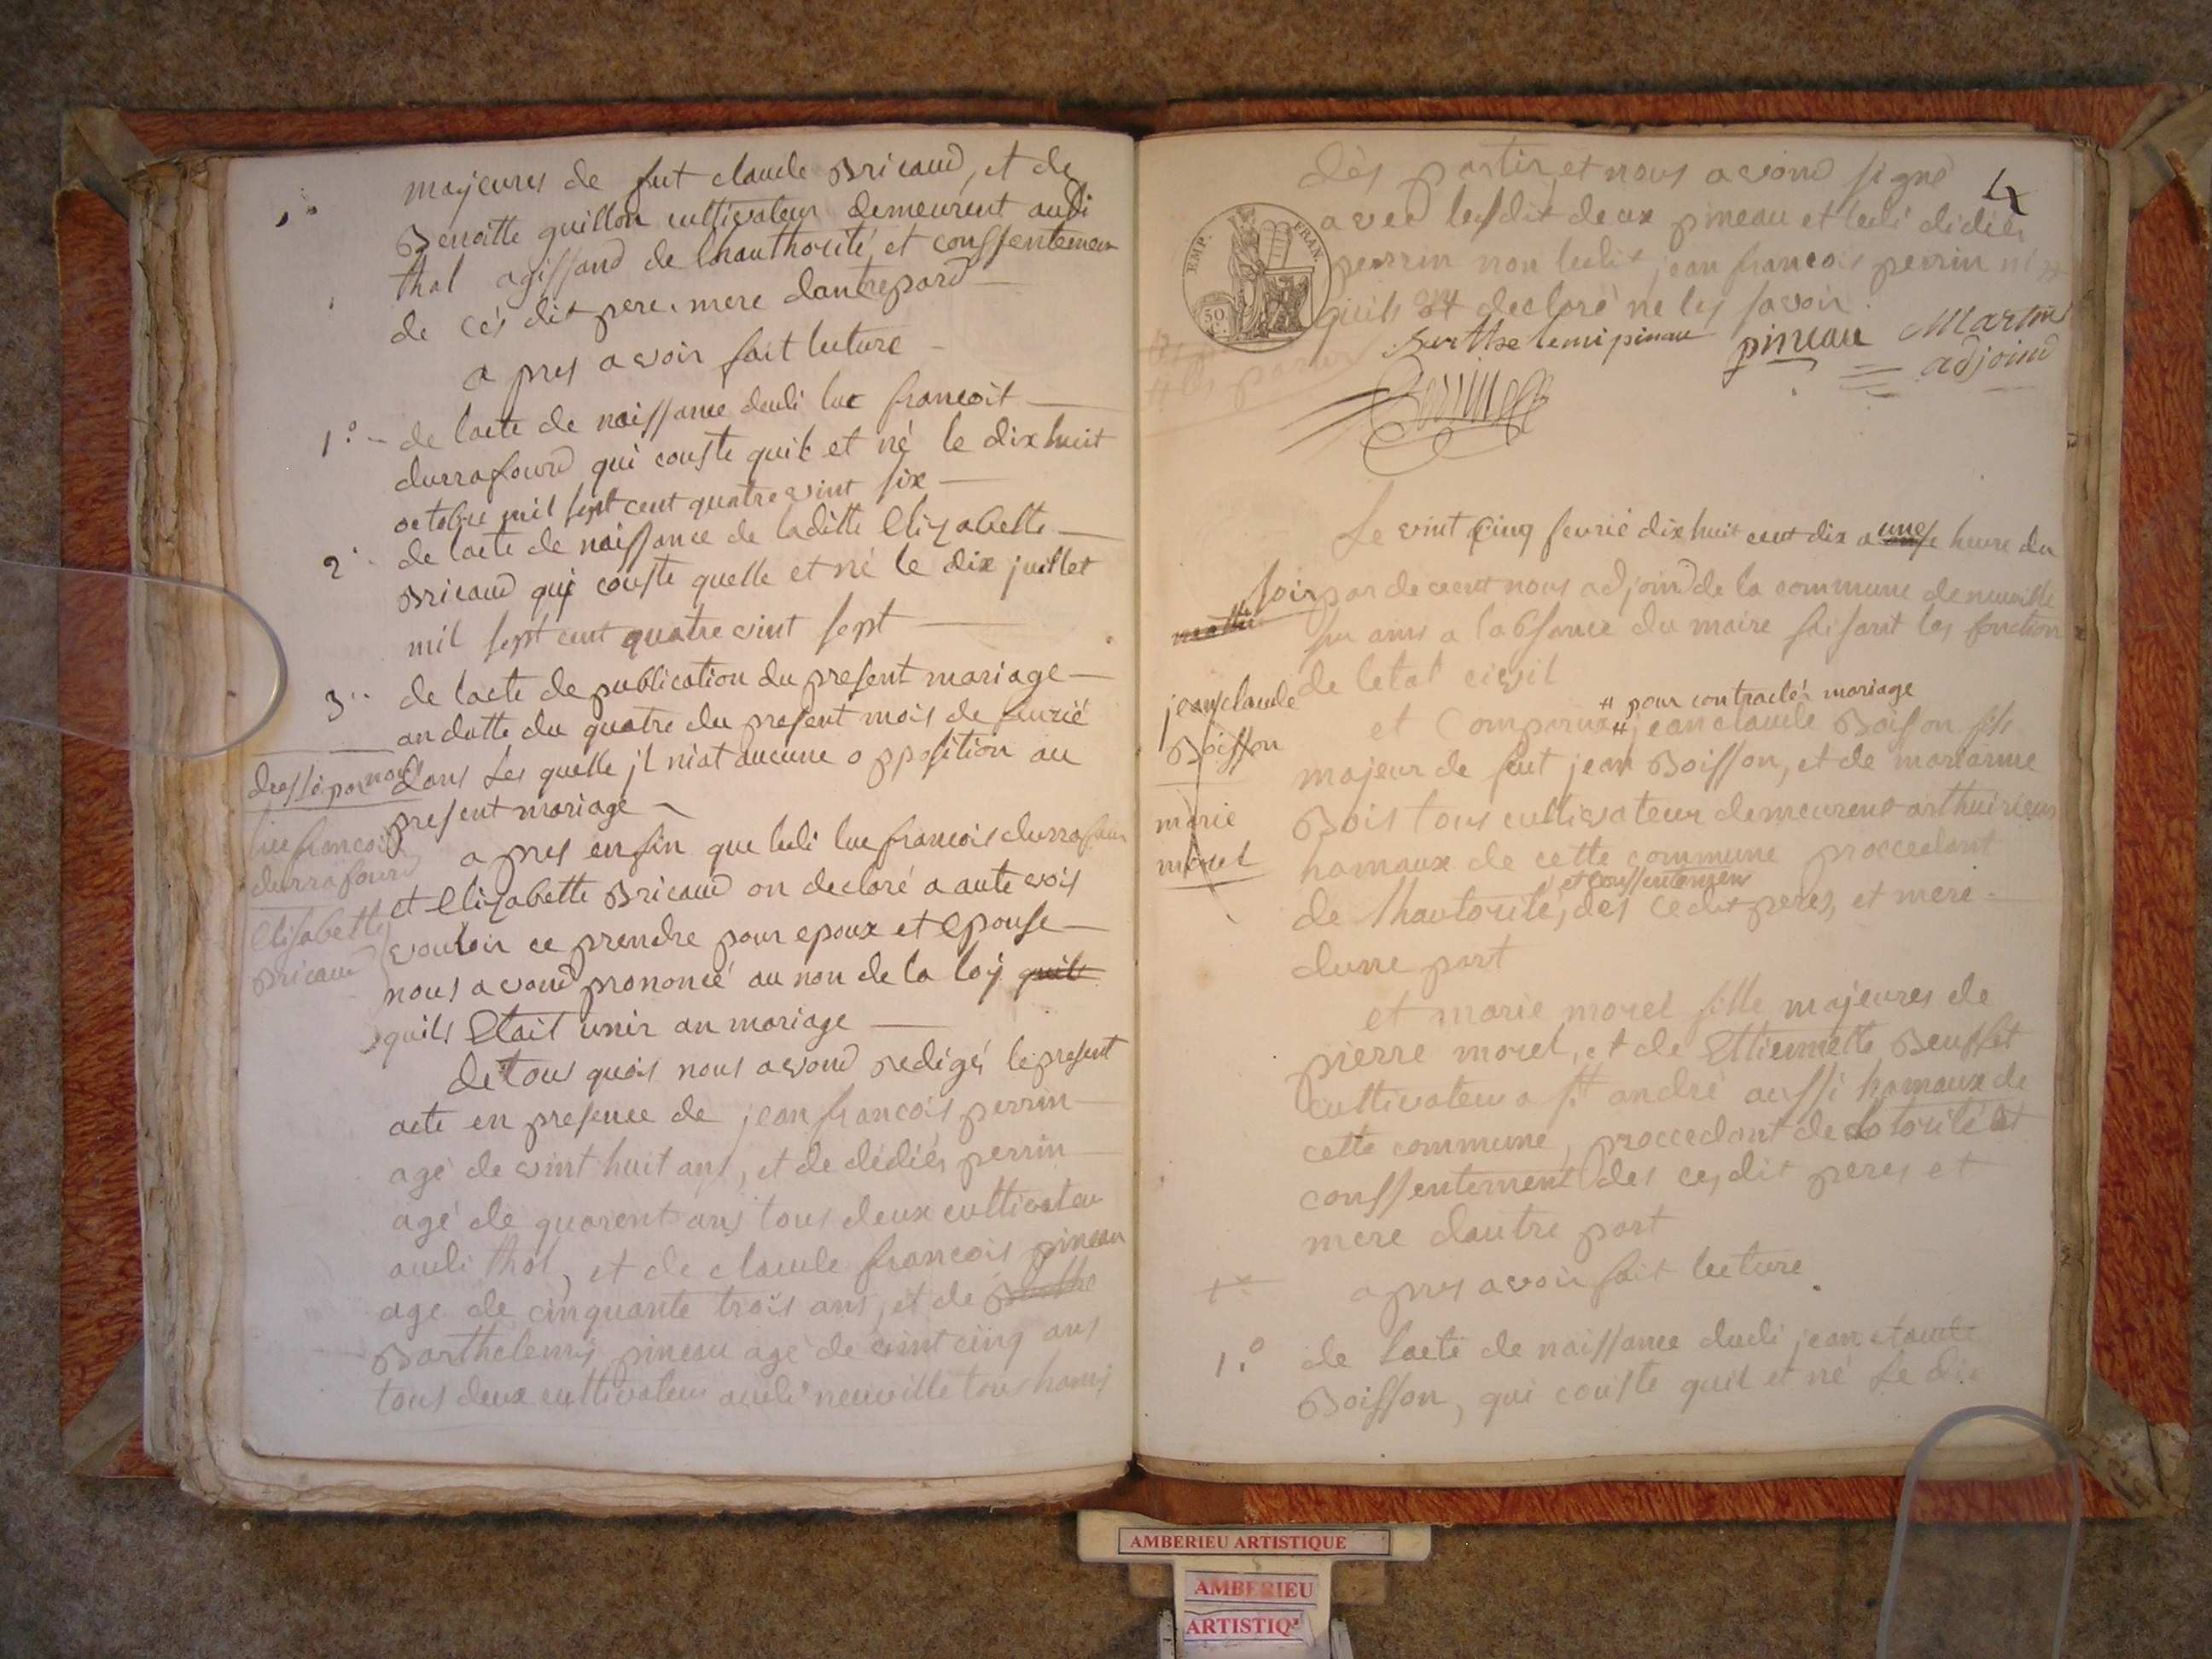 majeures de feut claude Bricaud, et de
Benoitte guillon cultivateur demeurent audi
thol agissand de lhauthorité et conssentemen
de cés dit pere. mere dautrepard
a pres avoir fait lecture
1° de lacte de naissance dudi luc francoit
durrafourd qui conste quil et né le dix huit
octobre mil sept cent quatre vint six
2° de lacte de naissance de laditte Elizabette
Bricaud qui conste quelle et né le dix juillet
mil sept cent quatre vint sept
3° de lacte de publication du present mariage
an datte du quatre du present mois de feuvrié
dressé par nous
dans les quelle jl niat aucune opposition au
present mariage
luc francois
durrafourd
Elisabette
Bricaud
a pres enfin que ledi luc francois durrafour
et Elizabette Bricaud on declaré a aute vois
vouloir ce prendre pour epoux et Epouse
nous avond prononcé au non de la loy quils
quils Etait unir an mariage
de tous quois nous avond redigés le present
acte en presence de jean francois perrin
agé de vint huit ans, et de dédiés perrin
agé de quarent ans tous deux cultivateu
audi thol, et de claude francois pineau
age de cinquante trois ans, et de
Barthelemy pineau agé de vint cinq ans
tous deux cultivateur audi neuville tous hamis
4
des partis, et nous avond signé
avec lesdit deux pineau et ledi didiés
perrin non ledit jean francois perrin
quils ont declaré ne les savoir
EMP. FRAN.
50 C.
Barthelemi pinau pineau Martin
adjoind
Perrin
Le vint cinq fevrié dix huit cent dix a une heure du
soir par devent nous adjoind de la commune de neuville
matti
sur ains a labsance du maire faisant les fonction
de letat civil
# pour contracté mariage
jean claude
Boisson
marie
morel
et Comparux # jean claude Boison fils
majeur de feut jean Boisson, et de marianne
Bois tous cultivateur demeurent a thuirieux
hamaux de cette commune proccedant
et conssentemen
de lhautorité, des cedit peres, et mere
dunne part
et marie morel fille majeures de
pierre morel, et de Ettiennette Beuffet
cultivateur a St andré aussi hamaux de
cette commune, proccedant de lotorité et
conssentement des cesdit peres et
mere dautre part
1° a pres avoir fait lecture
1.° de lacte de naissance dudi jean claude
Boisson, qui conste quil et né le dix
AMBERIEU ARTISTIQUE
AMBERIEU
ARTISTIQ